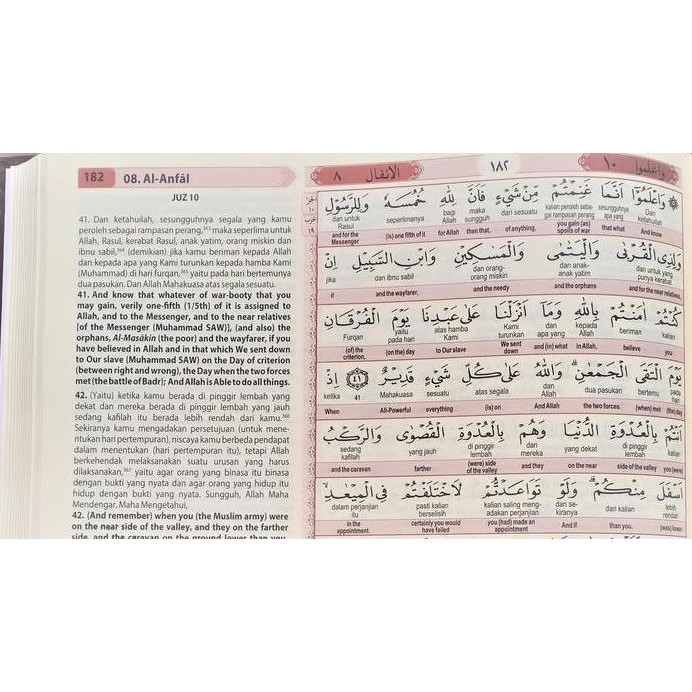 182 08. Al-Anfāl
JUZ 10
41. Dan ketahuilah, sesungguhnya segala yang kamu
peroleh sebagai rampasan perang,³⁶³ maka seperlima untuk
Allah, Rasul, kerabat Rasul, anak yatim, orang miskin dan
ibnu sabil,³⁶⁴ (demikian) jika kamu beriman kepada Allah
dan kepada apa yang Kami turunkan kepada hamba Kami
(Muhammad) di hari furqan,³⁶⁵ yaitu pada hari bertemunya
dua pasukan. Dan Allah Mahakuasa atas segala sesuatu.
41. And know that whatever of war-booty that you
may gain, verily one-fifth (1/5th) of it is assigned to
Allah, and to the Messenger, and to the near relatives
[of the Messenger (Muhammad SAW)], (and also) the
orphans, Al-Masâkin (the poor) and the wayfarer, if you
have believed in Allah and in that which We sent down
to Our slave (Muhammad SAW) on the Day of criterion
(between right and wrong), the Day when the two forces
met (the battle of Badr); And Allah is Able to do all things.
42. (Yaitu) ketika kamu berada di pinggir lembah yang
dekat dan mereka berada di pinggir lembah yang jauh
sedang kafilah itu berada lebih rendah dari kamu.³⁶⁶
Sekiranya kamu mengadakan persetujuan (untuk mene-
ntukan hari pertempuran), niscaya kamu berbeda pendapat
dalam menentukan (hari pertempuran itu), tetapi Allah
berkehendak melaksanakan suatu urusan yang harus
dilaksanakan,³⁶⁷ yaitu agar orang yang binasa itu binasa
dengan bukti yang nyata dan agar orang yang hidup itu
hidup dengan bukti yang nyata. Sungguh, Allah Maha
Mendengar, Maha Mengetahui,
42. (And remember) when you (the Muslim army) were
on the near side of the valley, and they on the farther
side, and the caravan on the ground lower than you.
واعلموا ١٠ ١٨٢ الانفال ٨
وَاعْلَمُوْٓا اَنَّمَا غَنِمْتُمْ مِّنْ شَيْءٍ فَاَنَّ لِلّٰهِ خُمُسَهٗ وَلِلرَّسُوْلِ
Dan ketahuilah sesungguhnya apa yang kalian peroleh seba-gai rampasan perang dari sesuatu maka sungguh bagi Allah seperlimanya dan untuk Rasul
And know that what you gain (as) spoils of war of anything, then that, for Allah (is) one fifth of it and for the Messenger
وَلِذِى الْقُرْبٰى وَالْيَتٰمٰى وَالْمَسٰكِيْنِ وَابْنِ السَّبِيْلِ اِنْ
dan untuk yang punya kerabat dan anak-anak yatim dan orang-orang miskin dan ibnu sabil jika
and for the near relatives, and the orphans and the needy and the wayfarer, if
كُنْتُمْ اٰمَنْتُمْ بِاللّٰهِ وَمَآ اَنْزَلْنَا عَلٰى عَبْدِنَا يَوْمَ الْفُرْقَانِ
kalian beriman kepada Allah dan apa yang Kami turunkan atas hamba Kami yaitu pada hari Furqan
you believe in Allah, and (in) what We sent down to Our slave (on the) day (of) the criterion,
يَوْمَ الْتَقَى الْجَمْعٰنِ ۗ وَاللّٰهُ عَلٰى كُلِّ شَيْءٍ قَدِيْرٌ ٤١ اِذْ
pada hari bertemu dua pasukan dan Allah atas segala sesuatu Mahakuasa 41 ketika
(the) day (when) met the two forces. And Allah (is) on everything All-Powerful When
اَنْتُمْ بِالْعُدْوَةِ الدُّنْيَا وَهُمْ بِالْعُدْوَةِ الْقُصْوٰى وَالرَّكْبُ
kalian di pinggir lembah yang dekat dan mereka di pinggir lembah yang jauh sedang kafilah
you (were) side of the valley on the near and they (were) side of the valley farther and the caravan
اَسْفَلَ مِنْكُمْ ۗ وَلَوْ تَوَاعَدْتُّمْ لَاخْتَلَفْتُمْ فِى الْمِيْعٰدِ ۙ
lebih rendah dari kalian dan se-kiranya kalian saling meng-adakan perjanjian pasti kalian berselisih dalam perjanjian itu
(was) lower than you. And if you (had) made an appointment certainly you would have failed in the appointment.